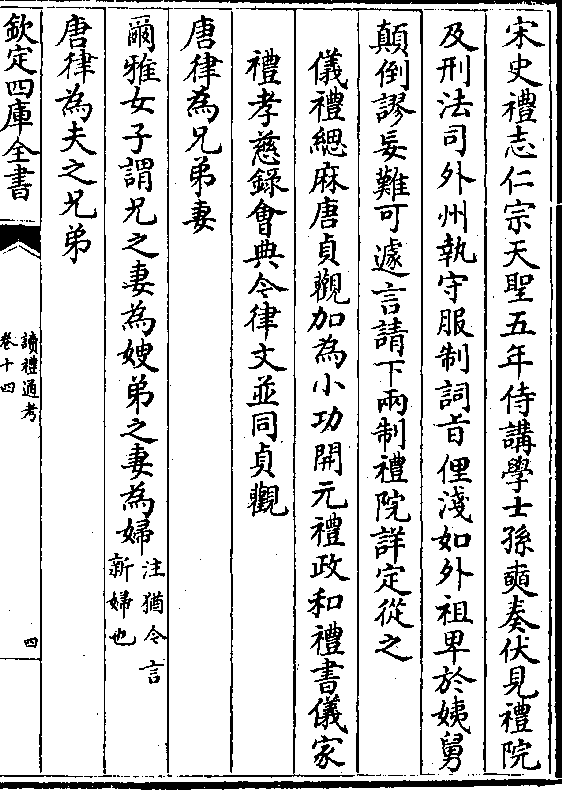 宋史禮志仁宗天聖五年侍講學士孫奭奏伏見禮院
及刑法司外州執守服制詞旨俚淺如外祖卑於姨舅
顛倒謬妄難可遽言請下兩制禮院詳定從之
儀禮緦麻唐貞觀加為小功開元禮政和禮書儀家
禮孝慈錄會典今律文並同貞觀
唐律為兄弟妻
爾雅女子謂兄之妻為嫂弟之妻為婦
注猶今言
新婦也
唐律為夫之兄弟
欽定四庫全書
讀禮通考
卷十四
四